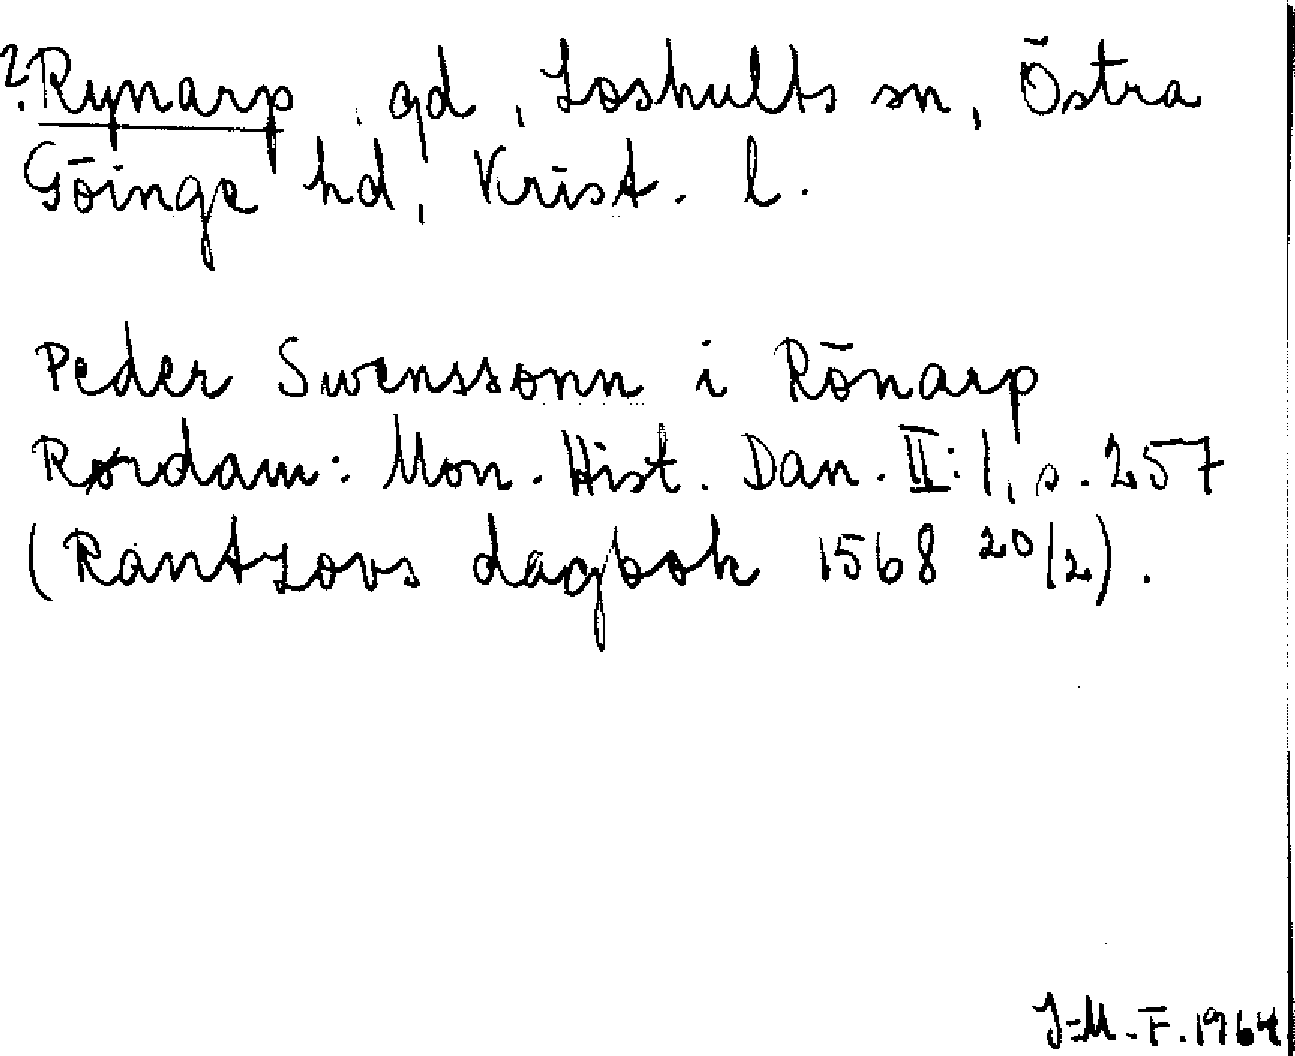 ?Rynarp, gd, Loshults sn, Östra
Göinge hd, Krist. l.
Peder Swenssonn i Rönarp
Rørdam: Mon. Hist. Dan. II:1, s. 257
(Rantzovs dagbok 1568 20/2).
J-M. F. 1964